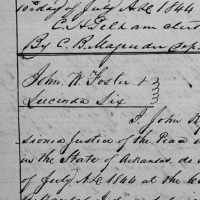 10th day of July A.D. 1844
E. H. Pelham clerk
By C. B. Magruder
John W. Foster &
Lucinda Six
I, John
sioned Justice of the Peace
in the State of Arkansas, do
of July A.D. 1844 at the